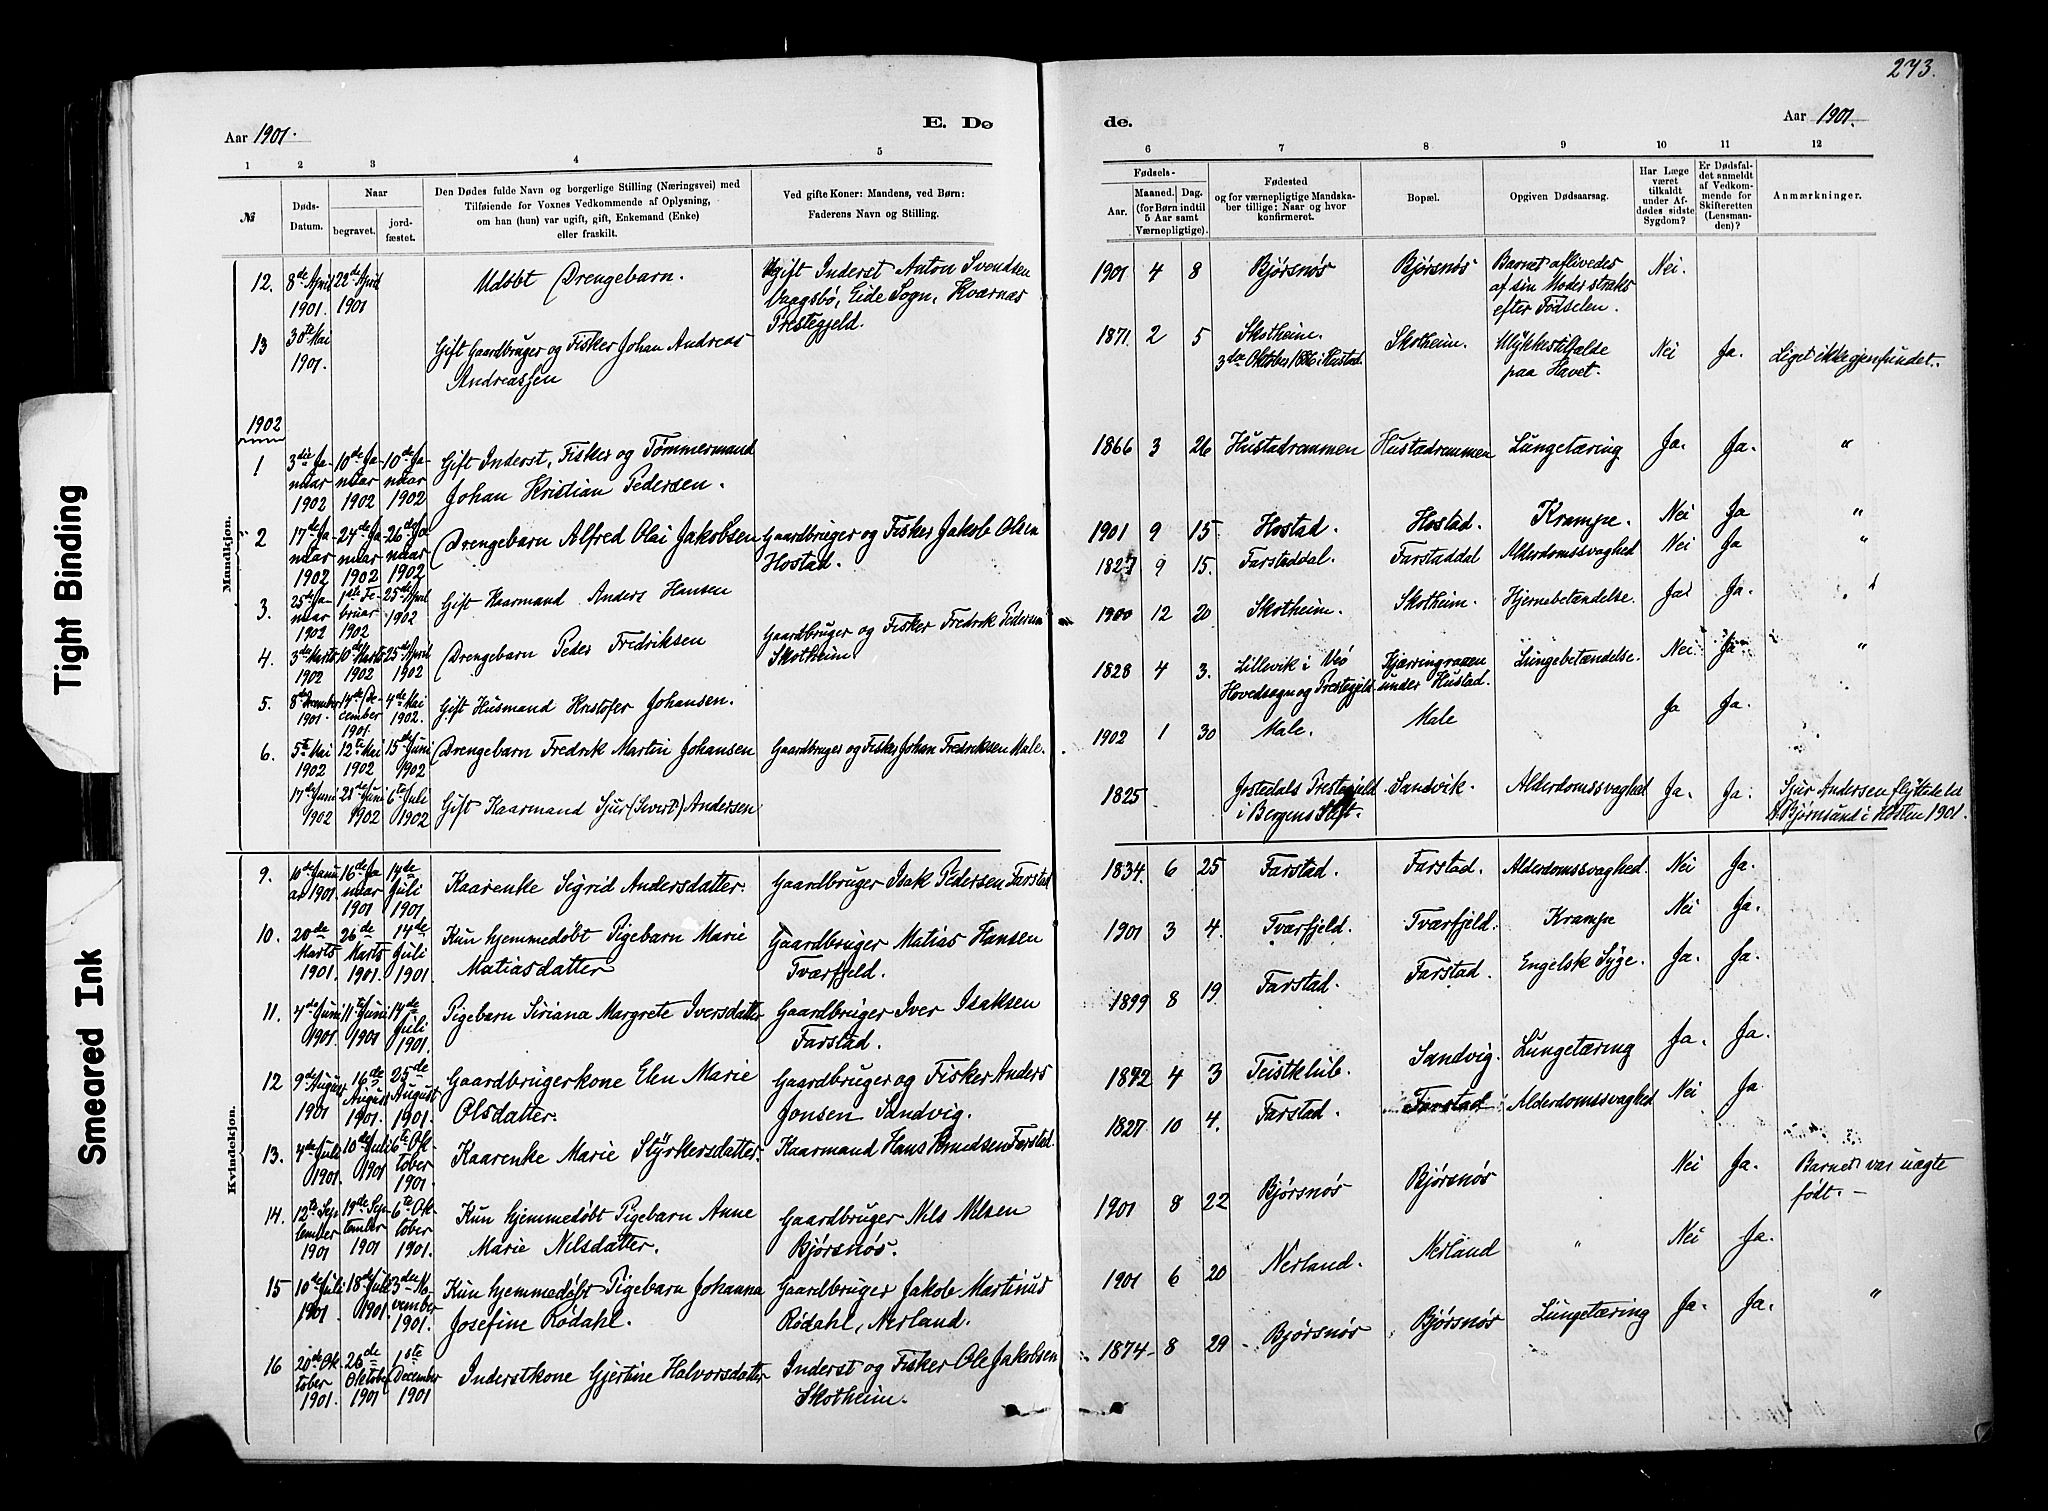 273.
Aar 1901.
E. Dø
de.
Aar 1901.
1 2 3 4 5 6 7 8 9 10 11 12
№
Døds-
Datum.
Naar
begravet.
jord-
fæstet.
Den Dødes fulde Navn og borgerlige Stilling (Næringsvei) med
Tilføiende for Voxnes Vedkommende af Oplysning,
om han (hun) var ugift, gift, Enkemand (Enke)
eller fraskilt.
Ved gifte Koner: Mandens, ved Børn:
Faderens Navn og Stilling.
Fødsels-
Aar.
Maaned. Dag.
(for Børn indtil
5 Aar samt
Værnepligtige).
Fødested
og for værnepligtige Mandska-
ber tillige: Naar og hvor
konfirmeret.
Bopæl.
Opgiven Dødsaarsag.
Har Læge
været
tilkaldt
under Af-
dødes sidste
Sygdom?
Er Dødsfal-
det anmeldt
af Vedkom-
mende for
Skifteretten
(Lensman-
den)?
Anmærkninger.
Mandkjøn.
12. 8de April 1901. 22de April 1901 Udøbt Drengebarn. Ugift Inderst Anton Svendsen
Vaagsbø, Eide Sogn, Kværnæs
Prestegjeld.
1901 4 8 Bjørsnøs Bjørsnøs Barnet aflivedes
af sin Moder straks
efter Fødselen. Nei.
13 30te Mai 1901. Gift Gaardbruger og Fisker Johan Andreas
Andreassen
1871 2 5 Skotheim.
3die Oktober 1886 i Hustad. Skotheim. Ulykkestilfælde
paa Havet. Nei Ja. Liget ikke gjenfundet.
1902
1 3die Januar 1902 10de Januar 1902 10de Januar 1902 Gift Inderst, Fisker og Tømmermand
Johan Kristian Pedersen.
1866 3 26 Hustadremmen Hustadremmen Lungetæring Ja. Ja. "
2 17de Januar 1902 24de Januar 1902 26de Januar 1902 Drengebarn Alfred Olai Jakobsen Gaardbruger og Fisker Jakob Olsen
Hostad.
1901 9 15 Hostad. Hostad. Krampe. Nei Ja "
3. 25de Januar 1902 1ste Februar 1902 25de April 1902 Gift Kaarmand Anders Hansen
1827 9 15. Farstaddal. Farstaddal Alderdomssvaghed Nei Ja "
4. 3die Marts 1902 10de Marts 1902 25de April 1902 Drengebarn Peder Fredriksen Gaardbruger og Fisker Fredrik Pedersen
Skotheim
1900 12 20 Skotheim. Skotheim. Hjernebetændelse. Ja Ja. "
5. 8de December 1901. 14de December 1901 4de Mai 1902. Gift Husmand Kristofer Johansen.
1828 4 3. Lillevik i Veø
Hovedsogn og Prestegjeld. Kjærringraaen
under Hustad. Lungebetændelse. Nei Ja "
6. 5te Mai 1902 12te Mai 1902 15de Juni 1902 Drengebarn Fredrik Martin Johansen Gaardbruger og Fisker Johan Fredriksen Male.
1902 1 30 Male. Male Ja Ja.
17de Juni 1902 28de Juni 1902 6te Juli 1902 Gift Kaarmand Sjur (Sivert) Andersen
1825 Jostedals Prestegjeld
i Bergens Stift. Sandvik. Alderdomssvaghed Ja. Ja. Sjur Andersen flyttede
Bjørnsund i Høsten 1901.
Kvindekjøn.
9. 10de Januar 1901 16de Januar 1901 14de Juli 1901 Kaarenke Sigrid Andersdatter. Gaardbruger Isak Pedersen Farstad
1834. 6 25 Farstad. Farstad. Alderdomssvaghed. Nei Ja.
10. 20de Marts 1901. 26de Marts 1901. 14de Juli 1901. Kun hjemmedøbt Pigebarn Marie
Matiasdatter Gaardbruger Matias Hansen
Tværfjeld.
1901 3 4. Tværfjeld. Tværfjeld. Krampe Nei Ja.
11. 4de Juni 1901. 11te Juni 1901 14de Juli 1901. Pigebarn Siriana Margrete Iversdatter Gaardbruger Iver Isaksen
Farstad.
1899 8 19 Farstad. Farstad. Engelsk Syge. Ja. Ja.
12 9de August 1901 16de August 1901. 25de August 1901. Gaardbrugerkone Elen Marie
Olsdatter. Gaardbruger og Fisker Anders
Jonsen Sandvig.
1872 4 3 Teistklub. Sandvig. Lungetæring Ja. Ja.
13. 4de Juli 1901. 10de Juli 1901 6te Oktober 1901. Kaarenke Marie Styrkersdatter. Kaarmand Hans Knudsen Farstad.
1827 10 4. Farstad. Farstad Alderdomssvaghed Nei Ja
14. 12te September 1901 19de September 1901 6te Oktober 1901. Kun hjemmedøbt Pigebarn Anne
Marie Nilsdatter. Gaardbruger Nils Nilsen
Bjørsnøs.
1901 8 22 Bjørsnøs Bjørsnøs Nei Ja. Barnet var uægte
født.-
15 10de Juli 1901 18de Juli 1901. 3die November 1901. Kun hjemmedøbt Pigebarn Johanna
Josefine Rødahl. Gaardbruger Jakob Martinus
Rødahl, Nerland.
1901 6 20 Nerland. Nerland " Nei Ja.
16 20de Oktober 1901. 26de Oktober 1901 1ste December 1901 Inderstkone Gjertine Halvorsdatter Inderst og Fisker Ole Jakobsen
Skotheim.
1874 8 29 Bjørsnøs Bjørsnøs Lungetæring Ja. Ja. "
Tight Binding
Smeared Ink